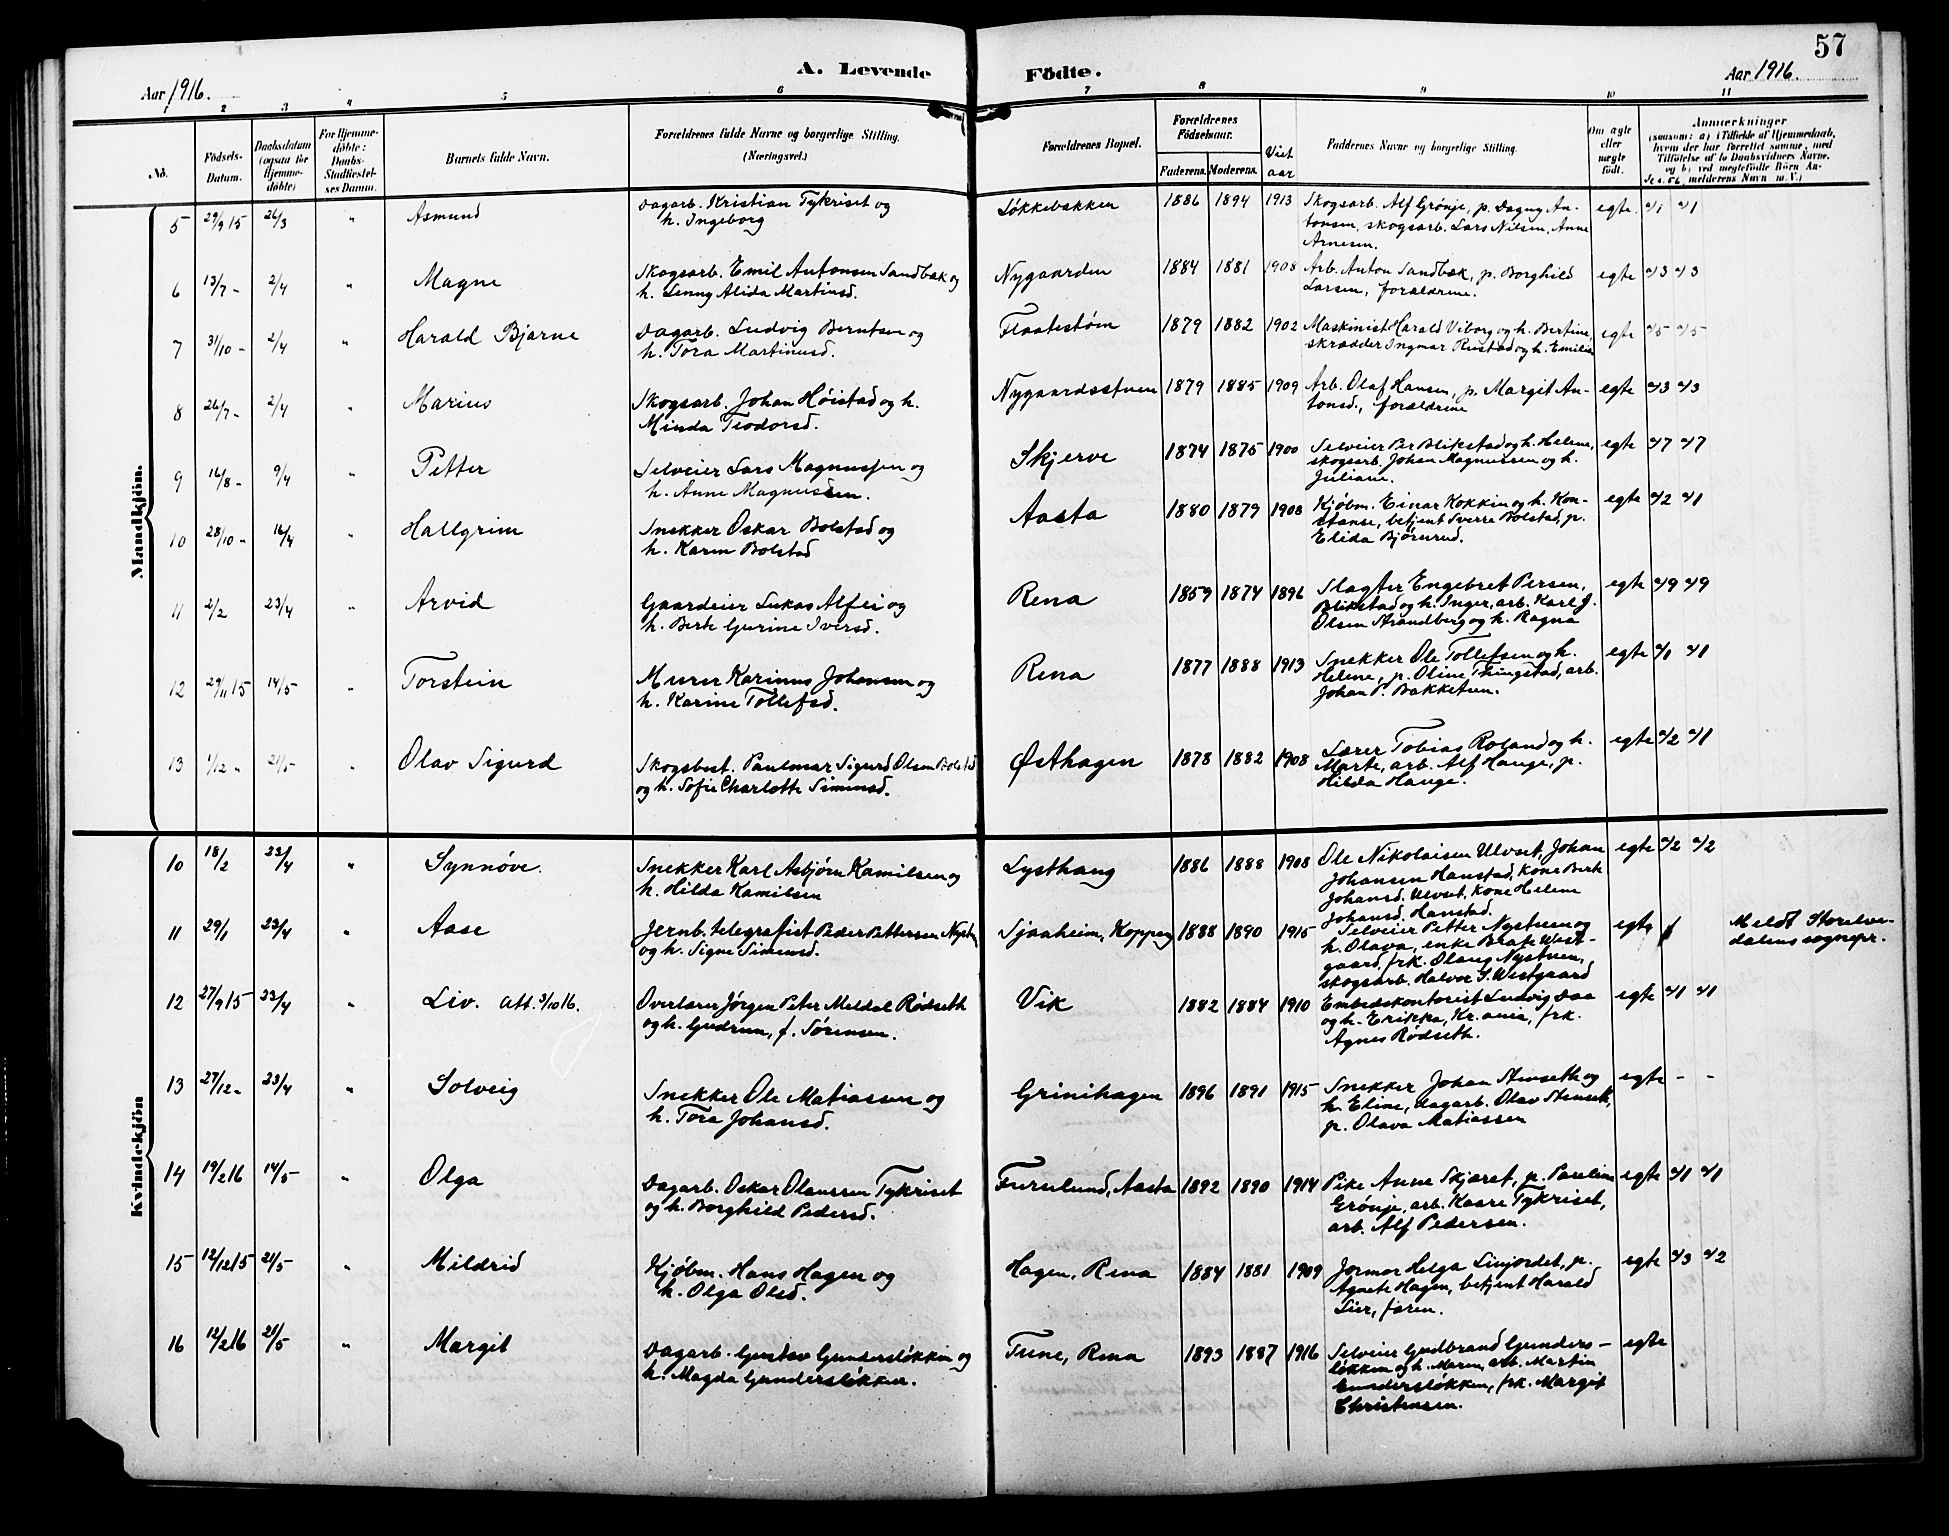 57
A. Levende Födte.
Aar 1916.
Aar 1916.
1 2 3 4 5 6 7 8 9 10 11
No.
Födsels-Datum.
Daabsdatum (ogsaa för Hjemme-döbte)
For Hjemme-döbte: Daabs-Stadfæstel-ses Datum.
Barnets fulde Navn.
Forældrenes fulde Navne og borgerlige Stilling. (Næringsvei.)
Forældrenes Bopæl.
Forældrenes Födselsaar.
Faderens. Moderens.
Viet aar
Faddernes Navne og borgerlige Stilling.
Om ægte eller uægte født.
Anmærkninger
(saasom: a) i Tilfælde af Hjemmedaab, hvem der har forrettet samme, med Tilföielse af to Daabsvidners Navne, og b) ved uægtefödte Börn An-melderens Navn m. V.)
Mandkjön.
5 29/9 15 26/3 " Asmund
Dagarb. Kristian Tykriset og
h. Ingeborg
Løkkebakken 1886 1894 1913
Skogsarb. Alf Grönje, p. Dagny An-
tonsen, skogsarb. Lars Nilsen, Anne
Arnesen.
egte. 4/1 4/1
6 13/7 - 2/4 " Magne
Skogsarb. Emil Antonsen Sandbæk og
h. Jenny Alida Martinsd.
Nygaarden 1884 1881 1908
Arb. Anton Sandbæk, p. Borghild
Larsen, forældrene.
egte 4/3 4/3
7 31/10 - 2/4 " Harald Bjarne
Dagarb. Ludvig Berntsen og
h. Tora Martinusd.
Flaatestøm 1879 1882 1902
Maskinist Harald Viborg og h. Bertine,
skrædder Ingmar Rustad og h. Emilie
egte 4/5 4/5
8 26/7 - 2/4 " Marius
Skogsarb. Johan Høistad og h.
Minda Teodorsd.
Nygaardsstuen 1879 1885 1909
Arb. Olaf Hansen, p. Margit An-
tonsd., forældrene
egte 4/3 4/3
9 16/8 - 9/4 " Petter
Selveier Lars Magnussen og
h. Anne Magnussen.
Skjerve 1874 1875 1900
Selveier Per Blikstad og h. Helene,
skogsarb. Johan Magnussen og h.
Juliane.
egte 4/7 4/7
10 28/10 - 16/4 " Hallgrim
Snekker Oskar Bolstad og
h. Karen Bolstad
Aasta 1880 1879 1908
Kjøbm. Einar Kokkin og h. Kon-
stanse, betjent Sverre Bolstad, p.
Elida Bjørnrud.
egte 4/2 4/1
11 2/2 23/4 " Arvid
Gaardeier Lukas Alfei og
h. Berte Gurine Iversd.
Rena 1859 1874 1896
Slagter Engebret Persen
Blikstad og h. Inger, arb. Karl J.
Olsen Strandberg og h. Ragna
egte 4/9 4/9
12 29/11 15 14/5 " Torstein
Murer Karinus Johansen og
h. Karine Tollefsd.
Rena 1877 1888 1913
Snekker Ole Tollefsen og h.
Helene, p. Oline Thingstad, arb.
Johan P. Bakketuen.
egte 4/1 4/1
13 1/12 " 21/5 " Olav Sigurd
Skogsbest. Paulmar Sigurd Olsen Bolstad
og h. Sofie Charlotte Simensd.
Østhagen 1878 1882 1908
Lærer Tobias Roland og h.
Marte, arb. Alf Hauge, p.
Hilda Hauge.
egte 4/2 4/1
Kvindekjön
10 18/2 23/4 " Synnöve.
Snekker Karl Asbjørn Kamilsen og
h. Hilda Kamilsen
Lysthaug 1886 1888 1908
Ole Nikolaisen Ulvset, Johan
Johansen Hanstad, kone Berte
Johansd. Ulvset, kone Helene
Johansd. Hanstad.
egte 4/2 4/2
11 29/1 23/4 " Aase
Jernb. telegrafist Peder Pettersen Nystu
og h. Signe Simensd.
Sjaaheim, Koppang 1888 1890 1915
Selveier Petter Nystuen og
h. Olava, enke Beate West-
gaard, frk. Olaug Nystuen,
skogsarb. Halvor S. Westgaard
egte
Meldt Storelve-
dalens sognepr.
12 27/9 15 23/4 " Liv. att. 3/10 16.
Overlærer Jörgen Peter Meldal Rødseth
og h. Gudrun, f. Sørensen.
Vik 1882 1884 1910
Embedskontorist Ludvig Daa
og h. Erikka, Kr.ania, frk.
Agnes Rødseth.
egte 4/1 4/1
13 27/12 - 23/4 " Solveig
Snekker Ole Matiassen og
h. Tora Johansd.
Grinihagen 1896 1891 1915
Snekker Johan Stenseth og
h. Eline, dagarb. Olav Stenseth,
p. Olava Matiassen
egte - -
14 19/2 16 14/5 " Olga
Dagarb. Oskar Olaussen Tykriset
og h. Borghild Pedersd.
Furulund, Aasta 1892 1890 1914
Pike Anne Skjæret, p. Pauline
Grönje, arb. Kaare Tykriset,
arb. Alf Pedersen.
egte 4/1 4/1
15 12/12 15 21/5 " Mildrid
Kjøbm. Hans Hagen og
h. Olga Olsd.
Hagen, Rena 1884 1881 1909
Jormor Helga Linjordet, p.
Agnete Hagen, betjent Harald
Lier, faren.
egte 4/3 4/2
16 12/2 16 21/5 " Margit
Dagarb. Gustav Gundersløkken og
h. Magda Gundersløkken.
Tune, Rena 1893 1887 1916
Selveier Gudbrand Gunders-
løkken og h. Maren, arb. Martin
Gundersløkken, frk. Margit
Christensen.
egte